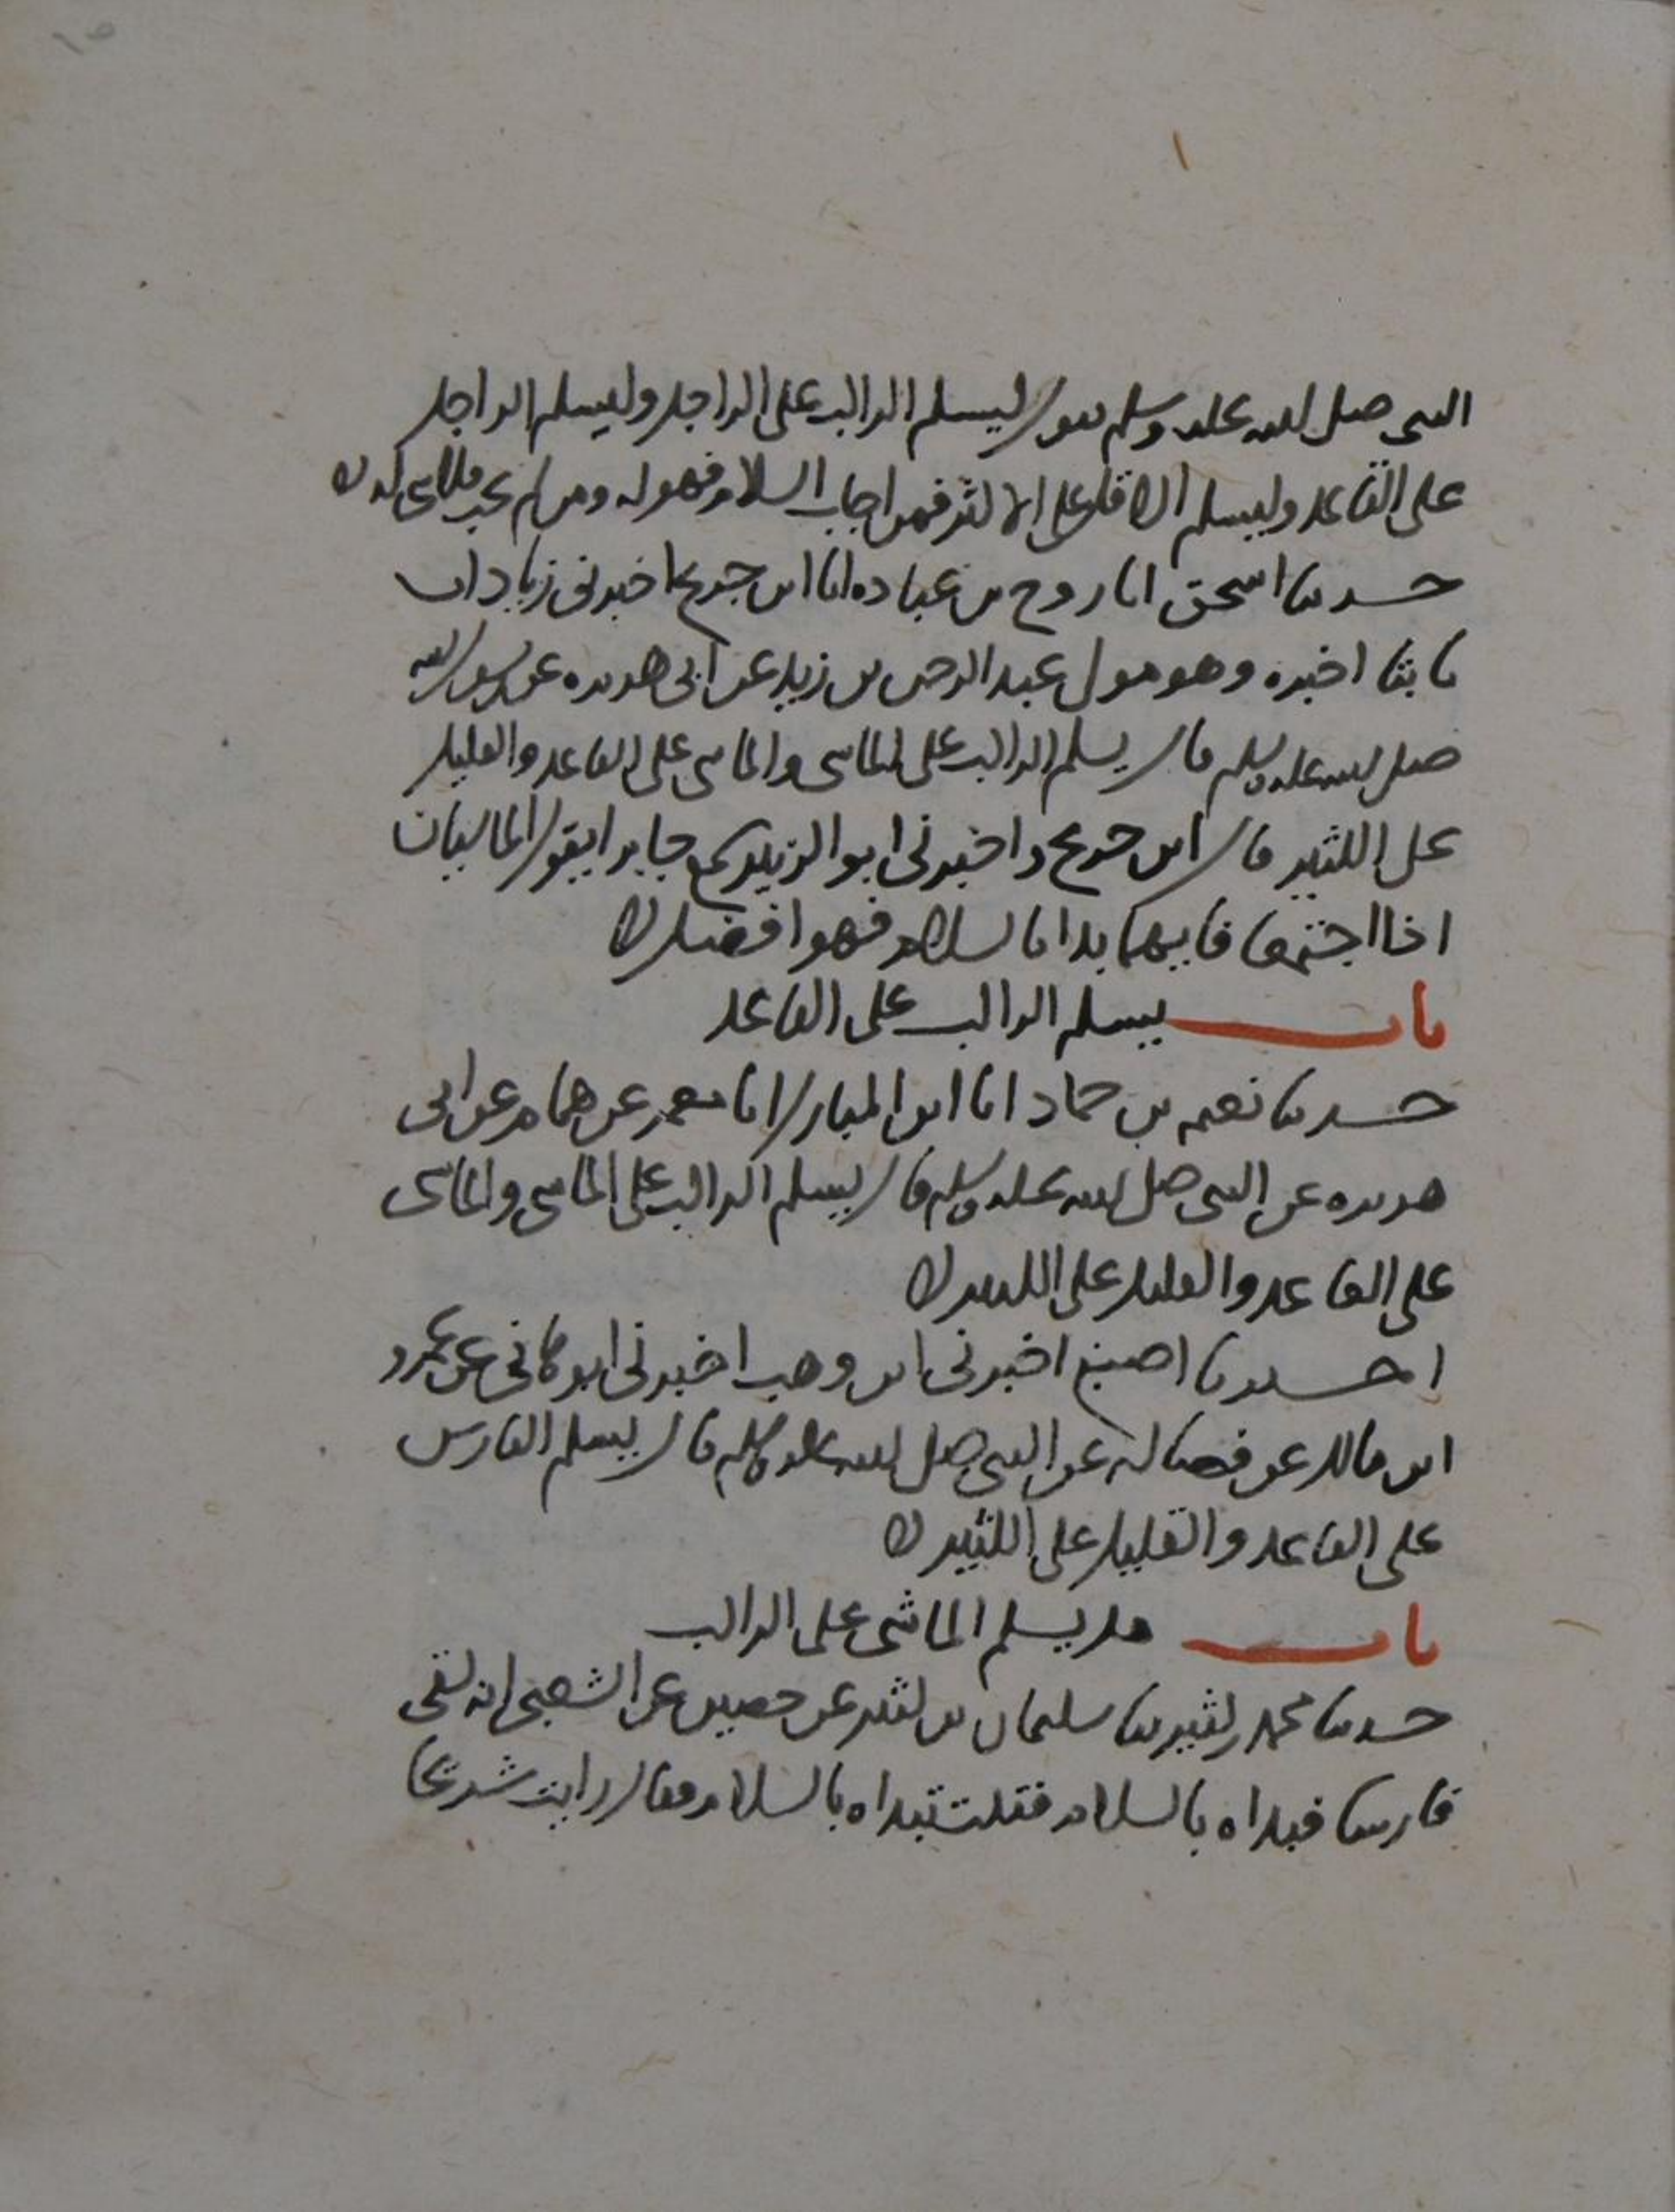 النبى صلى الله عليه وسلم يقول ليسلم الراكب على الراجل وليسلم الراجل
على القاعد وليسلم الاقل على الاكثر فمن اجاب السلام فهو له ومن لم يجب فلا شى له
حدثنا اسحق انا روح بن عباده انا ابن جريج اخبرنى زياد ان
ثابتا اخبره وهو مولى عبد الرحمن بن زيد عن ابى هريره عن رسول الله
صلى الله عليه وسلم قال يسلم الراكب على الماشى والماشى على القاعد والقليل
على الكثير قال ابن جريج واخبرنى ابو الزبير سمع جابرا يقول الماشيان
اذا اجتمعا فايهما بدا بالسلام فهو افضل
باب يسلم الراكب على القاعد
حدثنا نعيم بن حماد انا ابن المبارك انا معمر عن همام عن ابى
هريره عن النبى صلى الله عليه وسلم قال يسلم الراكب على الماشى والماشى
على القاعد والقليل على الكثير
حدثنا اصبغ اخبرنى ابن وهب اخبرنى ابو هانى عن عمرو
ابن مالك عن فضاله عن النبى صلى الله عليه وسلم قال يسلم الفارس
على القاعد والقليل على الكثير
باب هل يسلم الماشى على الراكب
حدثنا محمد بن كثير ثنا سليمان بن كثير عن حصين عن الشعبى انه لقى
فارسا فبداه بالسلام فقلت تبداه بالسلام فقال رايت شريحا